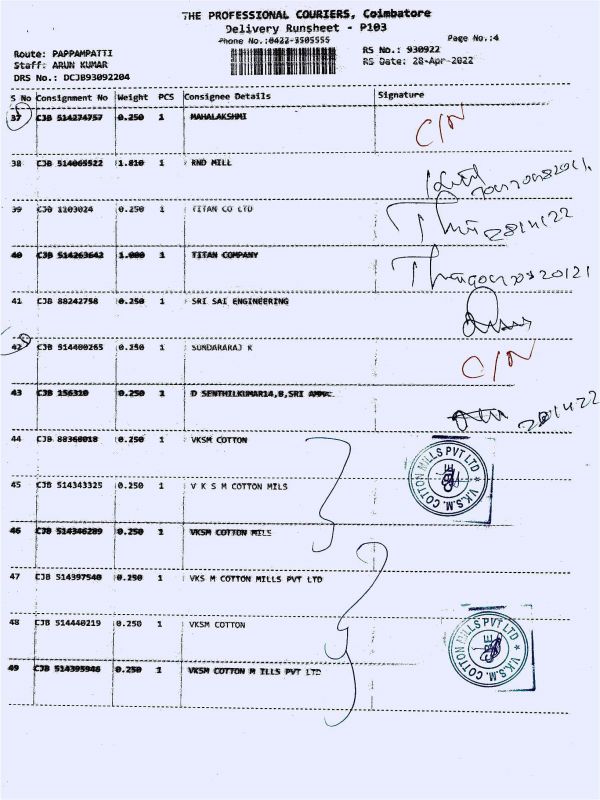 THE PROFESSIONAL COURIERS, Coimbatore
Delivery Runsheet - P103
Phone No.:0422-3505555
Page No.:4
Route: PAPPAMPATTI
RS No.: 930922
Staff: ARUN KUMAR
RS Date: 28-Apr-2022
DRS No.: DCJB93092204
S No Consignment No Weight PCS Consignee Details Signature
37 CJB 514274757 0.250 1 MAHALAKSHMI C/N
38 CJB 514065522 1.810 1 RND MILL
39 CJB 1103024 0.250 1 TITAN CO LTD 28/4/22
40 CJB 514263642 1.000 1 TITAN COMPANY
41 CJB 88242758 0.250 1 SRI SAI ENGINEERING
42 CJB 514400265 0.250 1 SUNDARARAJ K C/N
43 CJB 156310 0.250 1 D SENTHILKUMAR14,B,SRI AMMA 28/4/22
44 CJB 88368018 0.250 1 VKSM COTTON
V.K.S.M. COTTON MILLS PVT LTD
45 CJB 514343325 0.250 1 V K S M COTTON MILS
46 CJB 514346289 0.250 1 VKSM COTTON MILS
47 CJB 514397540 0.250 1 VKS M COTTON MILLS PVT LTD
48 CJB 514440219 0.250 1 VKSM COTTON
V.K.S.M. COTTON MILLS PVT LTD
49 CJB 514395946 0.250 1 VKSM COTTON M ILLS PVT LTD